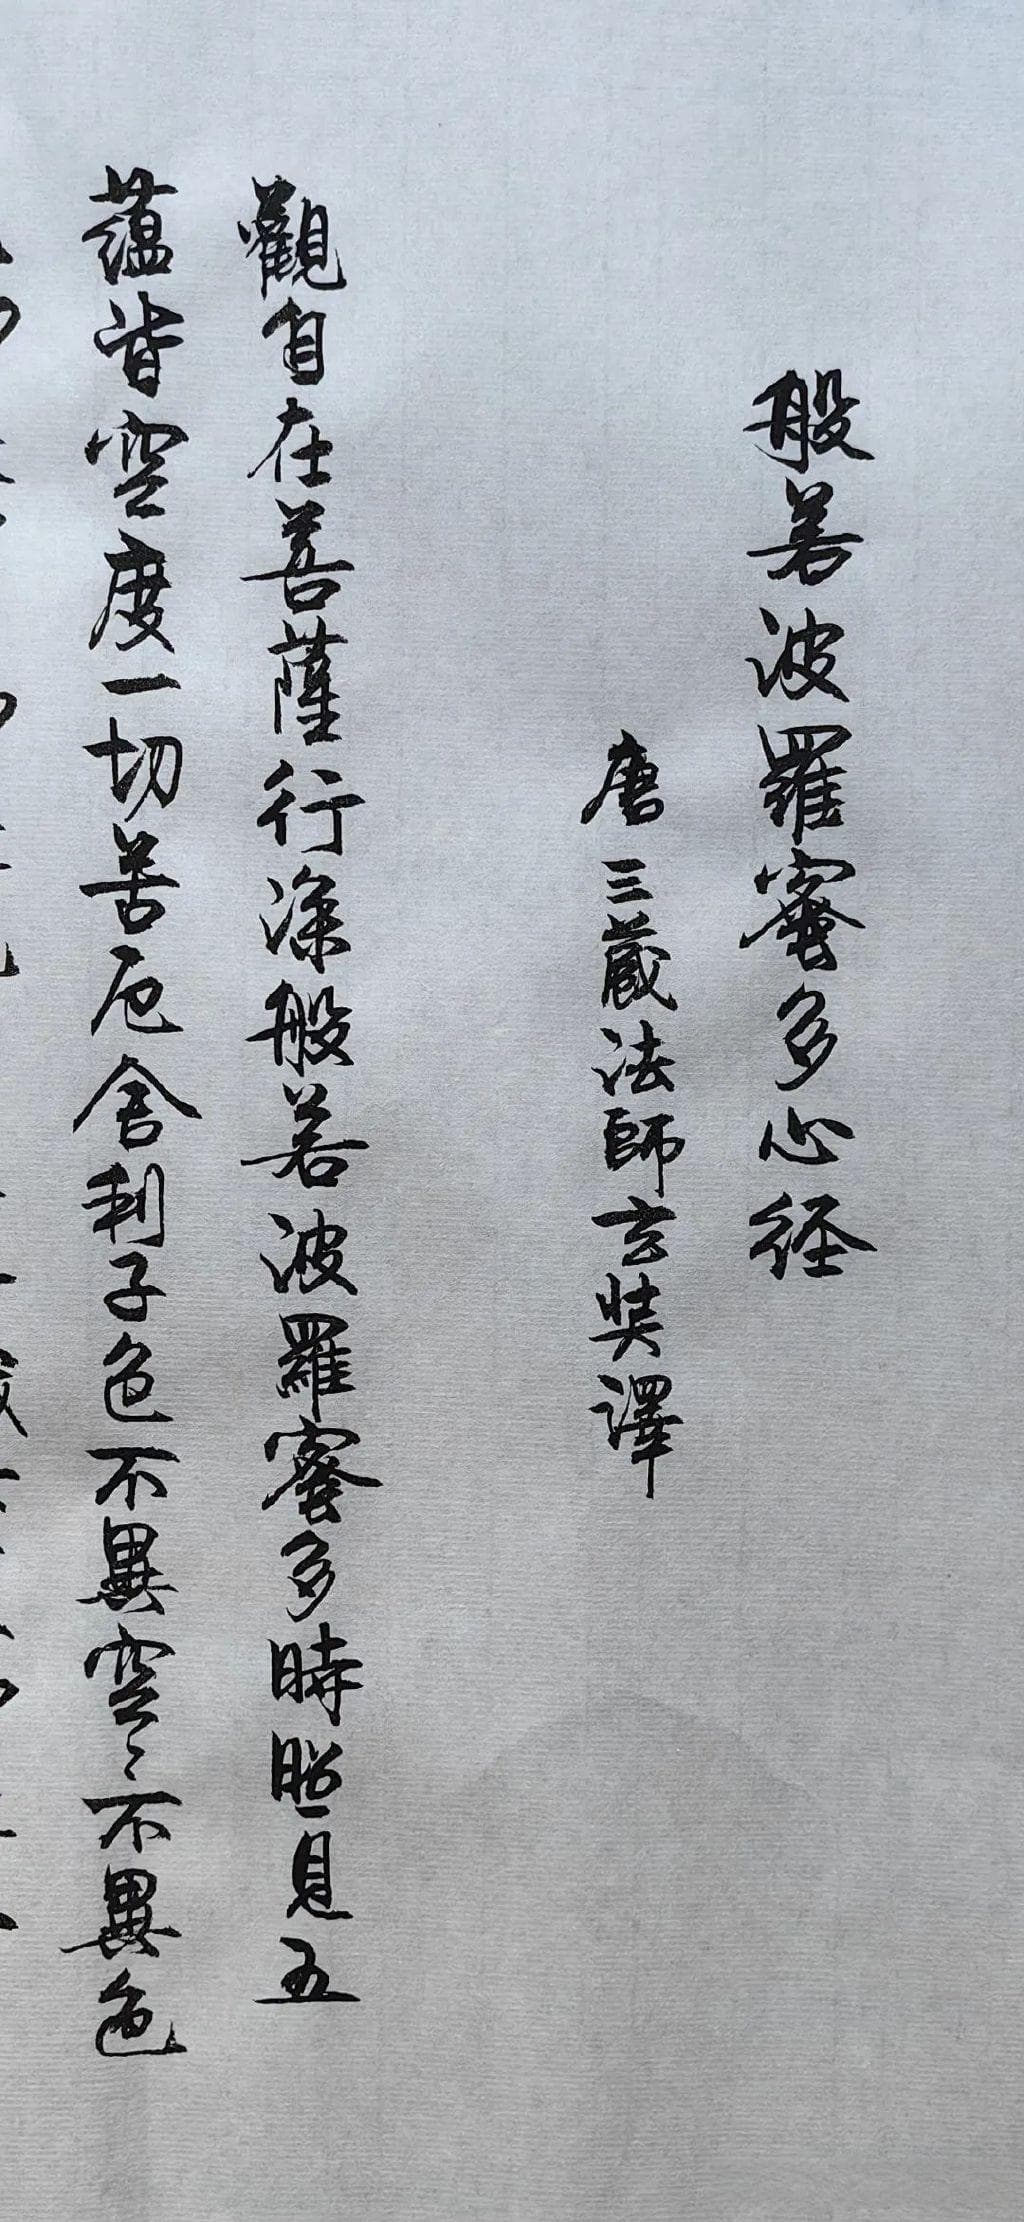 般若波羅蜜多心经
唐三藏法師玄奘譯
觀自在菩薩行深般若波羅蜜多時照見五
蘊皆空度一切苦厄舍利子色不異空〻不異色